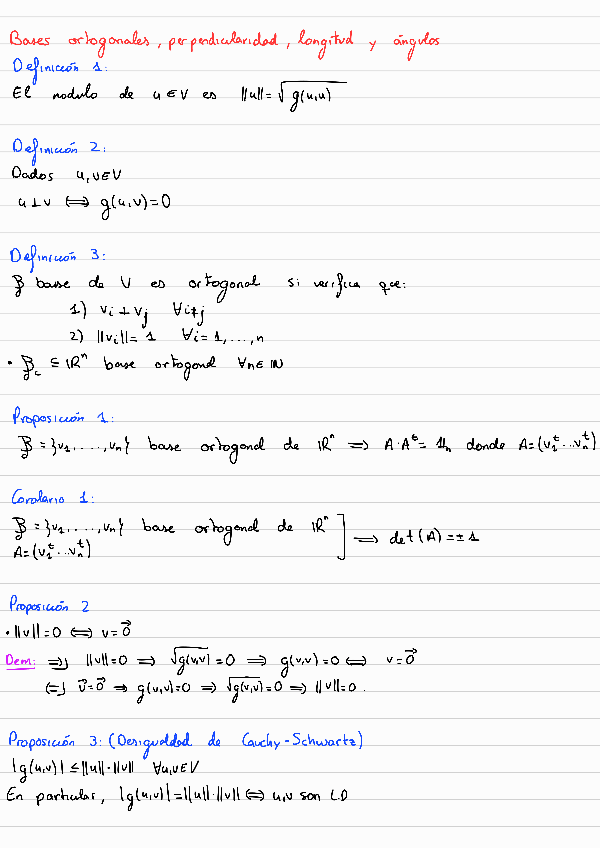 Bases ortogonales, perpendicularidad, longitud y ángulos
Definición 1:
El modulo de u∈V es ||u||=√g(u,u)
Definición 2:
Dados u,v∈V
u⊥v ⟺ g(u,v)=0
Definición 3:
B base de V es ortogonal si verifica que:
1) vi⊥vj ∀i≠j
2) ||vi||=1 ∀i=1,...,n
• Bc ⊆ ℝⁿ base ortogonal ∀n∈ℕ
Proposición 1:
B={v1,...,vn} base ortogonal de ℝⁿ ⟹ A·Aᵗ=1ln donde A=(v1ᵗ...vnᵗ)
Corolario 1:
B={v1,...,vn} base ortogonal de ℝⁿ
A=(v1ᵗ...vnᵗ) ] ⟹ det(A)=±1
Proposición 2
• ||v||=0 ⟺ v=0⃗
Dem: ⟹] ||v||=0 ⟹ √g(v,v)=0 ⟹ g(v,v)=0 ⟺ v=0⃗
⟸] v⃗=0⃗ ⟹ g(v,v)=0 ⟹ √g(v,v)=0 ⟹ ||v||=0.
Proposición 3: (Desigualdad de Cauchy-Schwartz)
|g(u,v)|≤||u||·||v|| ∀u,v∈V
En particular, |g(u,v)|=||u||·||v|| ⟺ u,v son L.D